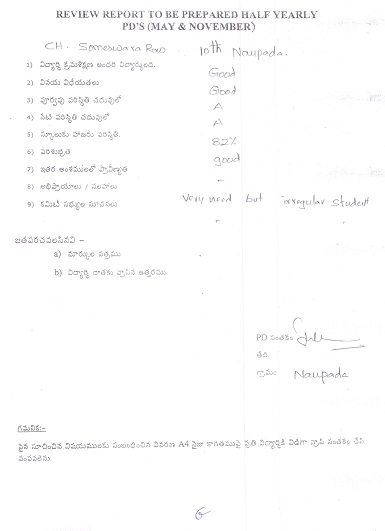 REVIEW REPORT TO BE PREPARED HALF YEARLY
PD'S (MAY & NOVEMBER)
CH. Someswara Rao 10th Naupada.
1) విద్యార్థి క్రమశిక్షణ అందరి విద్యార్థులలో. Good
2) వినయ విధేయతలు Good
3) పూర్వపు పరిస్థితి చదువులో A
4) నేటి పరిస్థితి చదువులో A
5) స్కూలుకు హాజరు పరిస్థితి. 82%
6) పరిశుభ్రత good
7) ఇతర అంశములలో ప్రావీణ్యత -
8) అభిప్రాయాలు / సలహాలు Very need but irregular student
9) కమిటి సభ్యుల సూచనలు -
జతపరచవలసినవి :-
a) మార్కుల పత్రము
b) విద్యార్థి దాతకు వ్రాసిన ఉత్తరము
PD సంతకం
తేది.
గ్రామం: Naupada
గమనిక:-
పైన సూచించిన విషయములకు సంబంధించిన వివరణ A4 సైజు కాగితముపై ప్రతి విద్యార్థికి విడిగా వ్రాసి సంతకం చేసి
పంపవలెను.